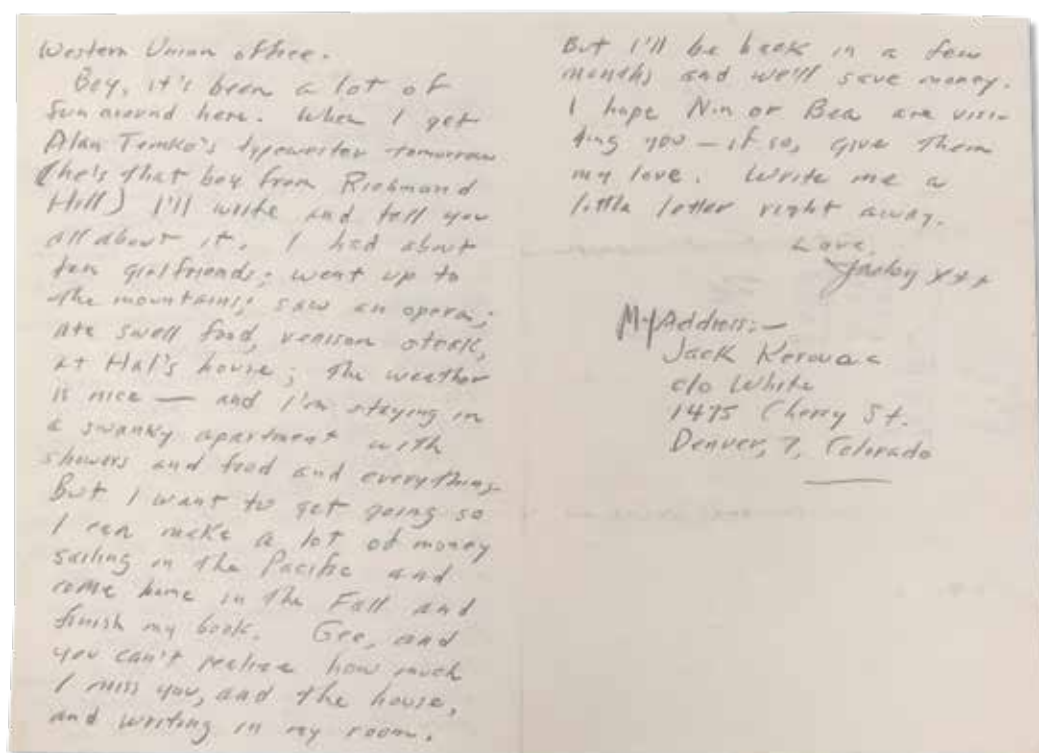 Western Union office.
Boy, it's been a lot of
fun around here. When I get
Alan Temko's typewriter tomorrow
(he's that boy from Richmond
Hill) I'll write and tell you
all about it. I had about
ten girlfriends; went up to
the mountains; saw an opera;
ate swell food, venison steak,
at Hal's house; the weather
is nice — and I'm staying in
a swanky apartment with
showers and food and everything.
But I want to get going so
I can make a lot of money
sailing in the Pacific and
come home in the Fall and
finish my book. Gee, and
you can't realize how much
I miss you, and the house,
and writing in my room.
But I'll be back in a few
months and we'll save money.
I hope Nin or Bea are visi-
ting you — if so, give them
my love. Write me a
little letter right away.
Love,
Jacky xxx
My Address:—
Jack Kerouac
c/o White
1475 Cherry St.
Denver, 7, Colorado